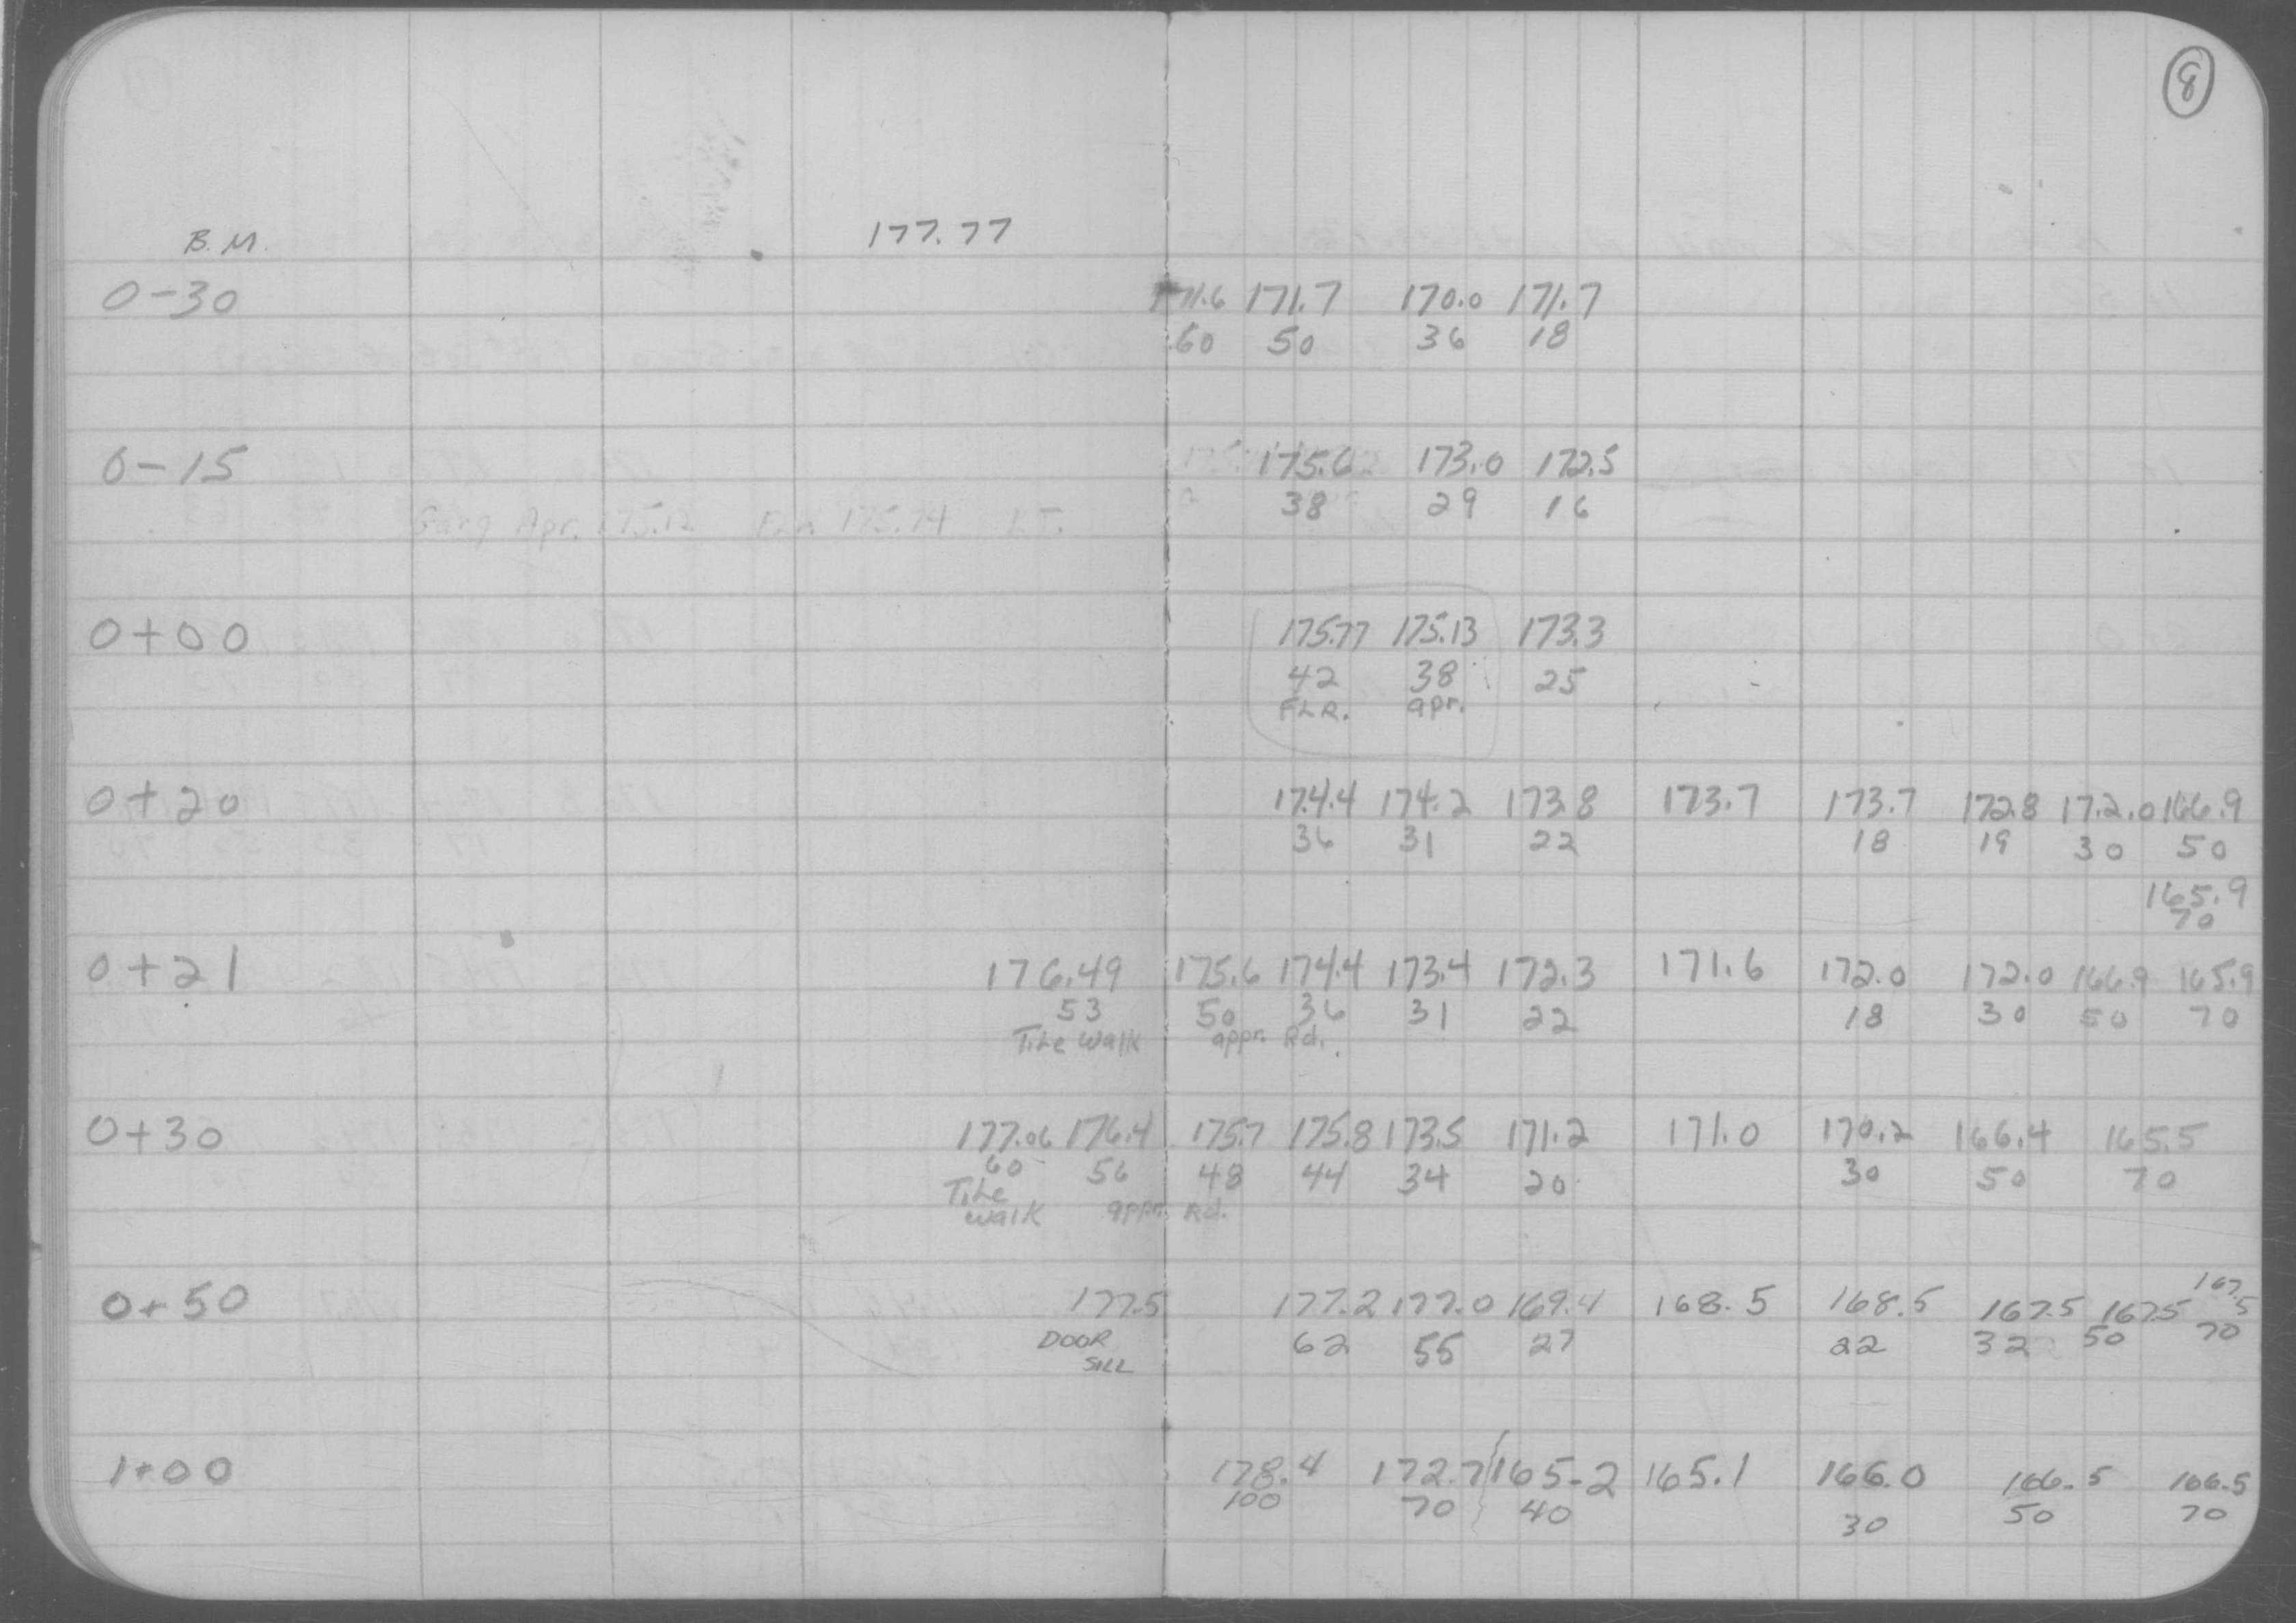 8
B.M. 177.77
0-30 171.6 171.7 170.0 171.7
60 50 36 18
0-15 175.6 173.0 172.5
38 29 16
Garg Apr. 175.12 FLR 175.74 LT.
0+00 175.77 175.13 173.3
42 38 25
FLR. apr.
0+20 174.4 174.2 173.8 173.7 173.7 172.8 172.0 166.9
36 31 22 18 19 30 50
165.9
70
0+21 176.49 175.6 174.4 173.4 172.3 171.6 172.0 172.0 166.9 165.9
53 50 36 31 22 18 30 50 70
Tile Walk appr. Rd.
0+30 177.06 176.4 175.7 175.8 173.5 171.2 171.0 170.2 166.4 165.5
60 56 48 44 34 20 30 50 70
Tile
walk appr. Rd.
0+50 177.5 177.2 177.0 169.4 168.5 168.5 167.5 167.5 167.5
DOOR 62 55 27 22 32 50 70
SILL
1+00 178.4 172.7 165.2 165.1 166.0 166.5 166.5
100 70 40 30 50 70